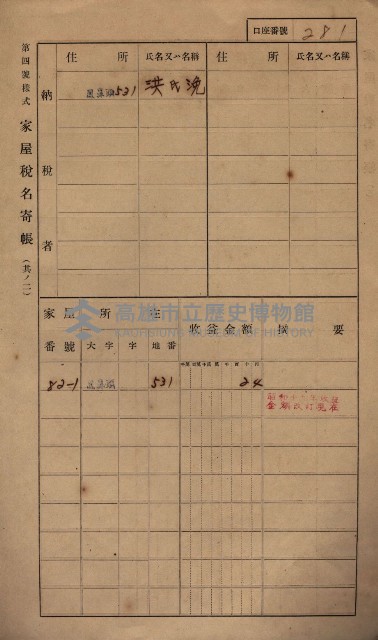 口座番號 281
第四號樣式 家屋稅名寄帳 (其ノ一)
住所 氏名又ハ名稱 住所 氏名又ハ名稱
納稅者
531 洪氏
高雄市立歷史博物館
KAOHSIUNG MUSEUM OF HISTORY
家屋所在 收益金額 摘要
番號 大字 字 地番
82-1 531 24
金額改訂